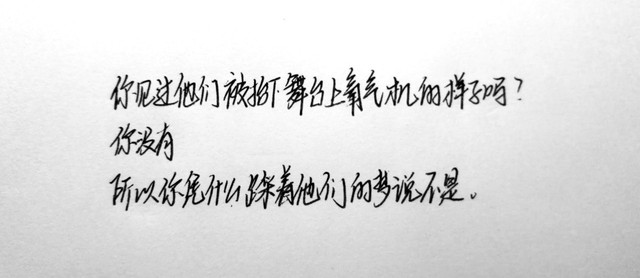 你见过他们被抬下舞台上氧气机的样子吗？
你没有
所以你凭什么踩着他们的梦说不是。